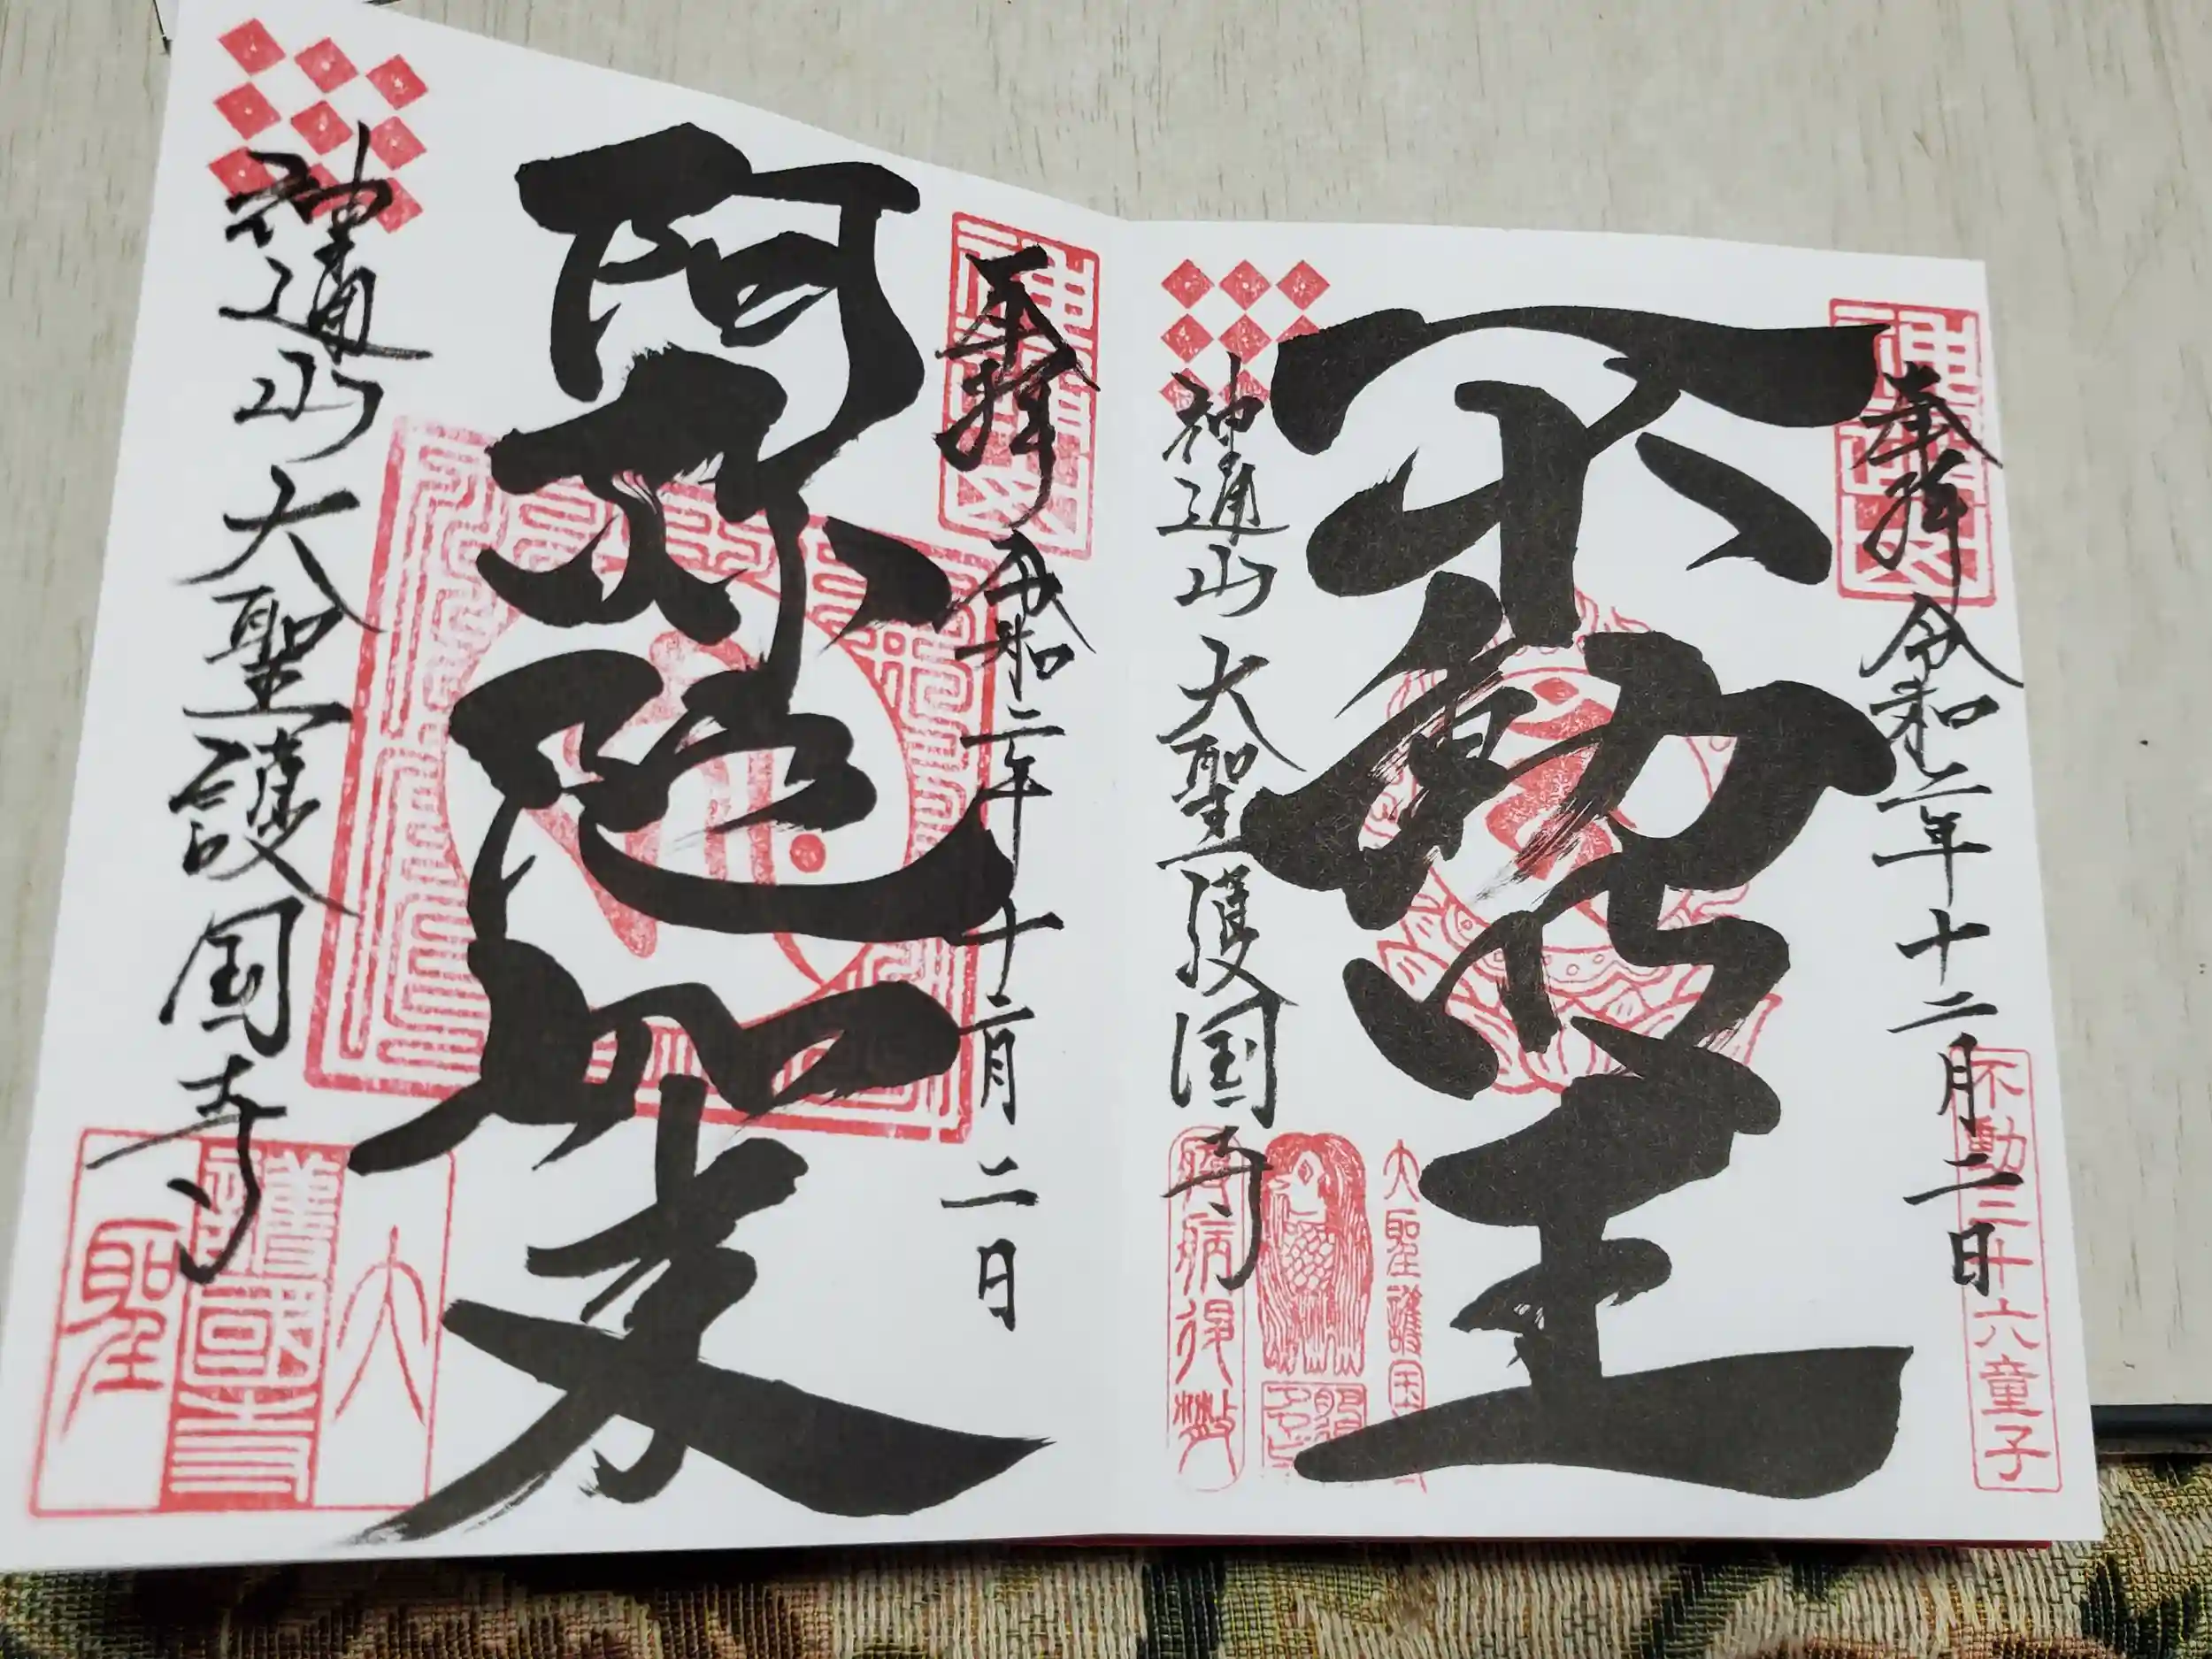 奉拝 令和二年十二月二日
不動三十六童子
不動明王
大聖護国寺
神通山 大聖護国寺
奉拝 令和二年十二月二日
阿弥陀如来
神通山 大聖護国寺
大聖護國寺